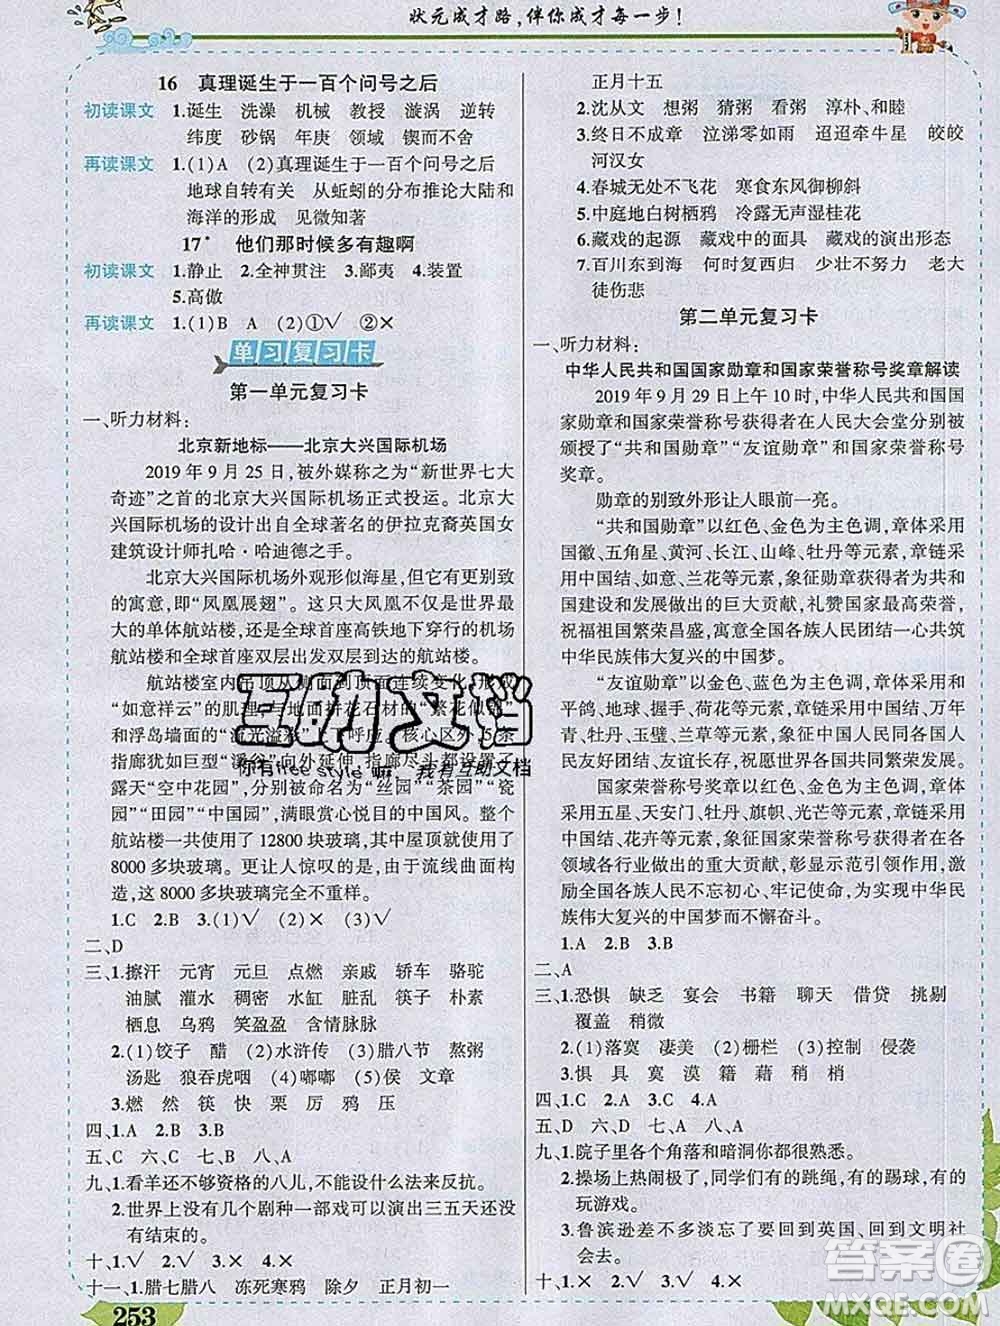 状元成才路,伴你成才每一步!
16 真理诞生于一百个问号之后
初读课文 1.诞生 洗澡 机械 教授 漩涡 逆转
纬度 砂锅 年庚 领域 锲而不舍
再读课文 1.(1)A (2)真理诞生于一百个问号之后
地球自转有关 从蚯蚓的分布推论大陆和
海洋的形成 见微知著
17* 他们那时候多有趣啊
初读课文 1.静止 2.全神贯注 3.鄙夷 4.装置
5.高傲
再读课文 1.(1)B A (2)①√ ②×
单习复习卡
第一单元复习卡
一、听力材料:
北京新地标——北京大兴国际机场
2019 年 9 月 25 日,被外媒称之为“新世界七大
奇迹”之首的北京大兴国际机场正式投运。北京大
兴国际机场的设计出自全球著名的伊拉克裔英国女
建筑设计师扎哈·哈迪德之手。
北京大兴国际机场外观形似海星,但它有更别致
的寓意,即“凤凰展翅”。这只大凤凰不仅是世界最
大的单体航站楼,还是全球首座高铁地下穿行的机场
航站楼和全球首座双层出发双层到达的航站楼。
航站楼室内吊顶从侧面到顶面连续变化,形成
“如意祥云”的肌理,地面拼花石材的“繁花似锦”
和浮岛墙面的“流光溢彩”上下呼应。核心区外5条
指廊犹如巨型“溪谷”向外延伸,指廊尽头都设置了露
天“空中花园”,分别被命名为“丝园”“茶园”“瓷
园”“田园”“中国园”,满眼赏心悦目的中国风。整个
航站楼一共使用了 12800 块玻璃,其中屋顶就使用了
8000 多块玻璃。更让人惊叹的是,由于流线曲面构
造,这 8000 多块玻璃完全不重样。
1.C 2.B 3.(1)√ (2)× (3)√
二、D
三、1.擦汗 元宵 元旦 点燃 亲戚 轿车 骆驼
油腻 灌水 稠密 水缸 脏乱 筷子 朴素
栖息 乌鸦 笑盈盈 含情脉脉
2.(1)饺子 醋 (2)水浒传 (3)腊八节 熬粥
汤匙 狼吞虎咽 (4)嘟嘟 (5)侯 文章
3.燃 然 筷 快 栗 厉 鸦 压
四、1.A 2.B
五、C 六、C 七、B 八、A
九、1.看羊还不够资格的八儿,不能设什么法来反抗。
2.世界上没有几个剧种一部戏可以演出三五天还没
有结束的。
十、1.√ 2.√ 3.× 4.×
十一、1.腊七腊八 冻死寒鸦 除夕 正月初一
正月十五
2.沈从文 想粥 猜粥 看粥 淳朴、和睦
3.终日不成章 泣涕零如雨 迢迢牵牛星 皎皎
河汉女
4.春城无处不飞花 寒食东风御柳斜
5.中庭地白树栖鸦 冷露无声湿桂花
6.藏戏的起源 藏戏中的面具 藏戏的演出形态
7.百川东到海 何时复西归 少壮不努力 老大
徒伤悲
第二单元复习卡
一、听力材料:
中华人民共和国国家勋章和国家荣誉称号奖章解读
2019 年 9 月 29 日上午 10 时,中华人民共和国
国家勋章和国家荣誉称号获得者在人民大会堂分别被
颁授了“共和国勋章”“友谊勋章”和国家荣誉称号
奖章。
勋章的别致外形让人眼前一亮。
“共和国勋章”以红色、金色为主色调,章体采用
国徽、五角星、黄河、长江、山峰、牡丹等元素,章链采
用中国结、如意、兰花等元素,象征勋章获得者为共和
国建设和发展做出的巨大贡献,礼赞国家最高荣誉,
祝福祖国繁荣昌盛,寓意全国各族人民团结一心共筑
中华民族伟大复兴的中国梦。
“友谊勋章”以金色、蓝色为主色调,章体采用和
平鸽、地球、握手、荷花等元素,章链采用中国结、万年
青、牡丹、玉璧、兰草等元素,象征中国人民同各国人
民友好团结、友谊长存,祝愿世界各国共同繁荣发展。
国家荣誉称号奖章以红色、金色为主色调,章体采
用五星、天安门、牡丹、旗帜、光芒等元素,章链采用中
国结、花卉等元素,象征国家荣誉称号获得者在各
领域各行业做出的巨大贡献,彰显示范引领作用,激
励全国各族人民不忘初心、牢记使命,为实现中华民
族伟大复兴的中国梦而不懈奋斗。
1.A 2.B 3.B
二、A
三、1.恐惧 缺乏 宴会 书籍 聊天 借贷 挑剔
覆盖 稍微
2.(1)落寞 凄美 (2)栅栏 (3)控制 侵袭
3.惧 具 寞 漠 籍 藉 稍 梢
四、1.C 2.C 3.C 4.A
五、D 六、D 七、A 八、A
九、1.院子里各个角落和暗洞你都很熟悉。
2.操场上热闹极了,同学们有的跳绳,有的踢球,有的
玩游戏。
3.鲁滨逊差不多淡忘了要回到英国、回到文明社
会去。
十、1.√ 2.× 3.× 4.√
253
互助文档
你有free style嘛,我有互助文档
答案圈
MXQE.COM